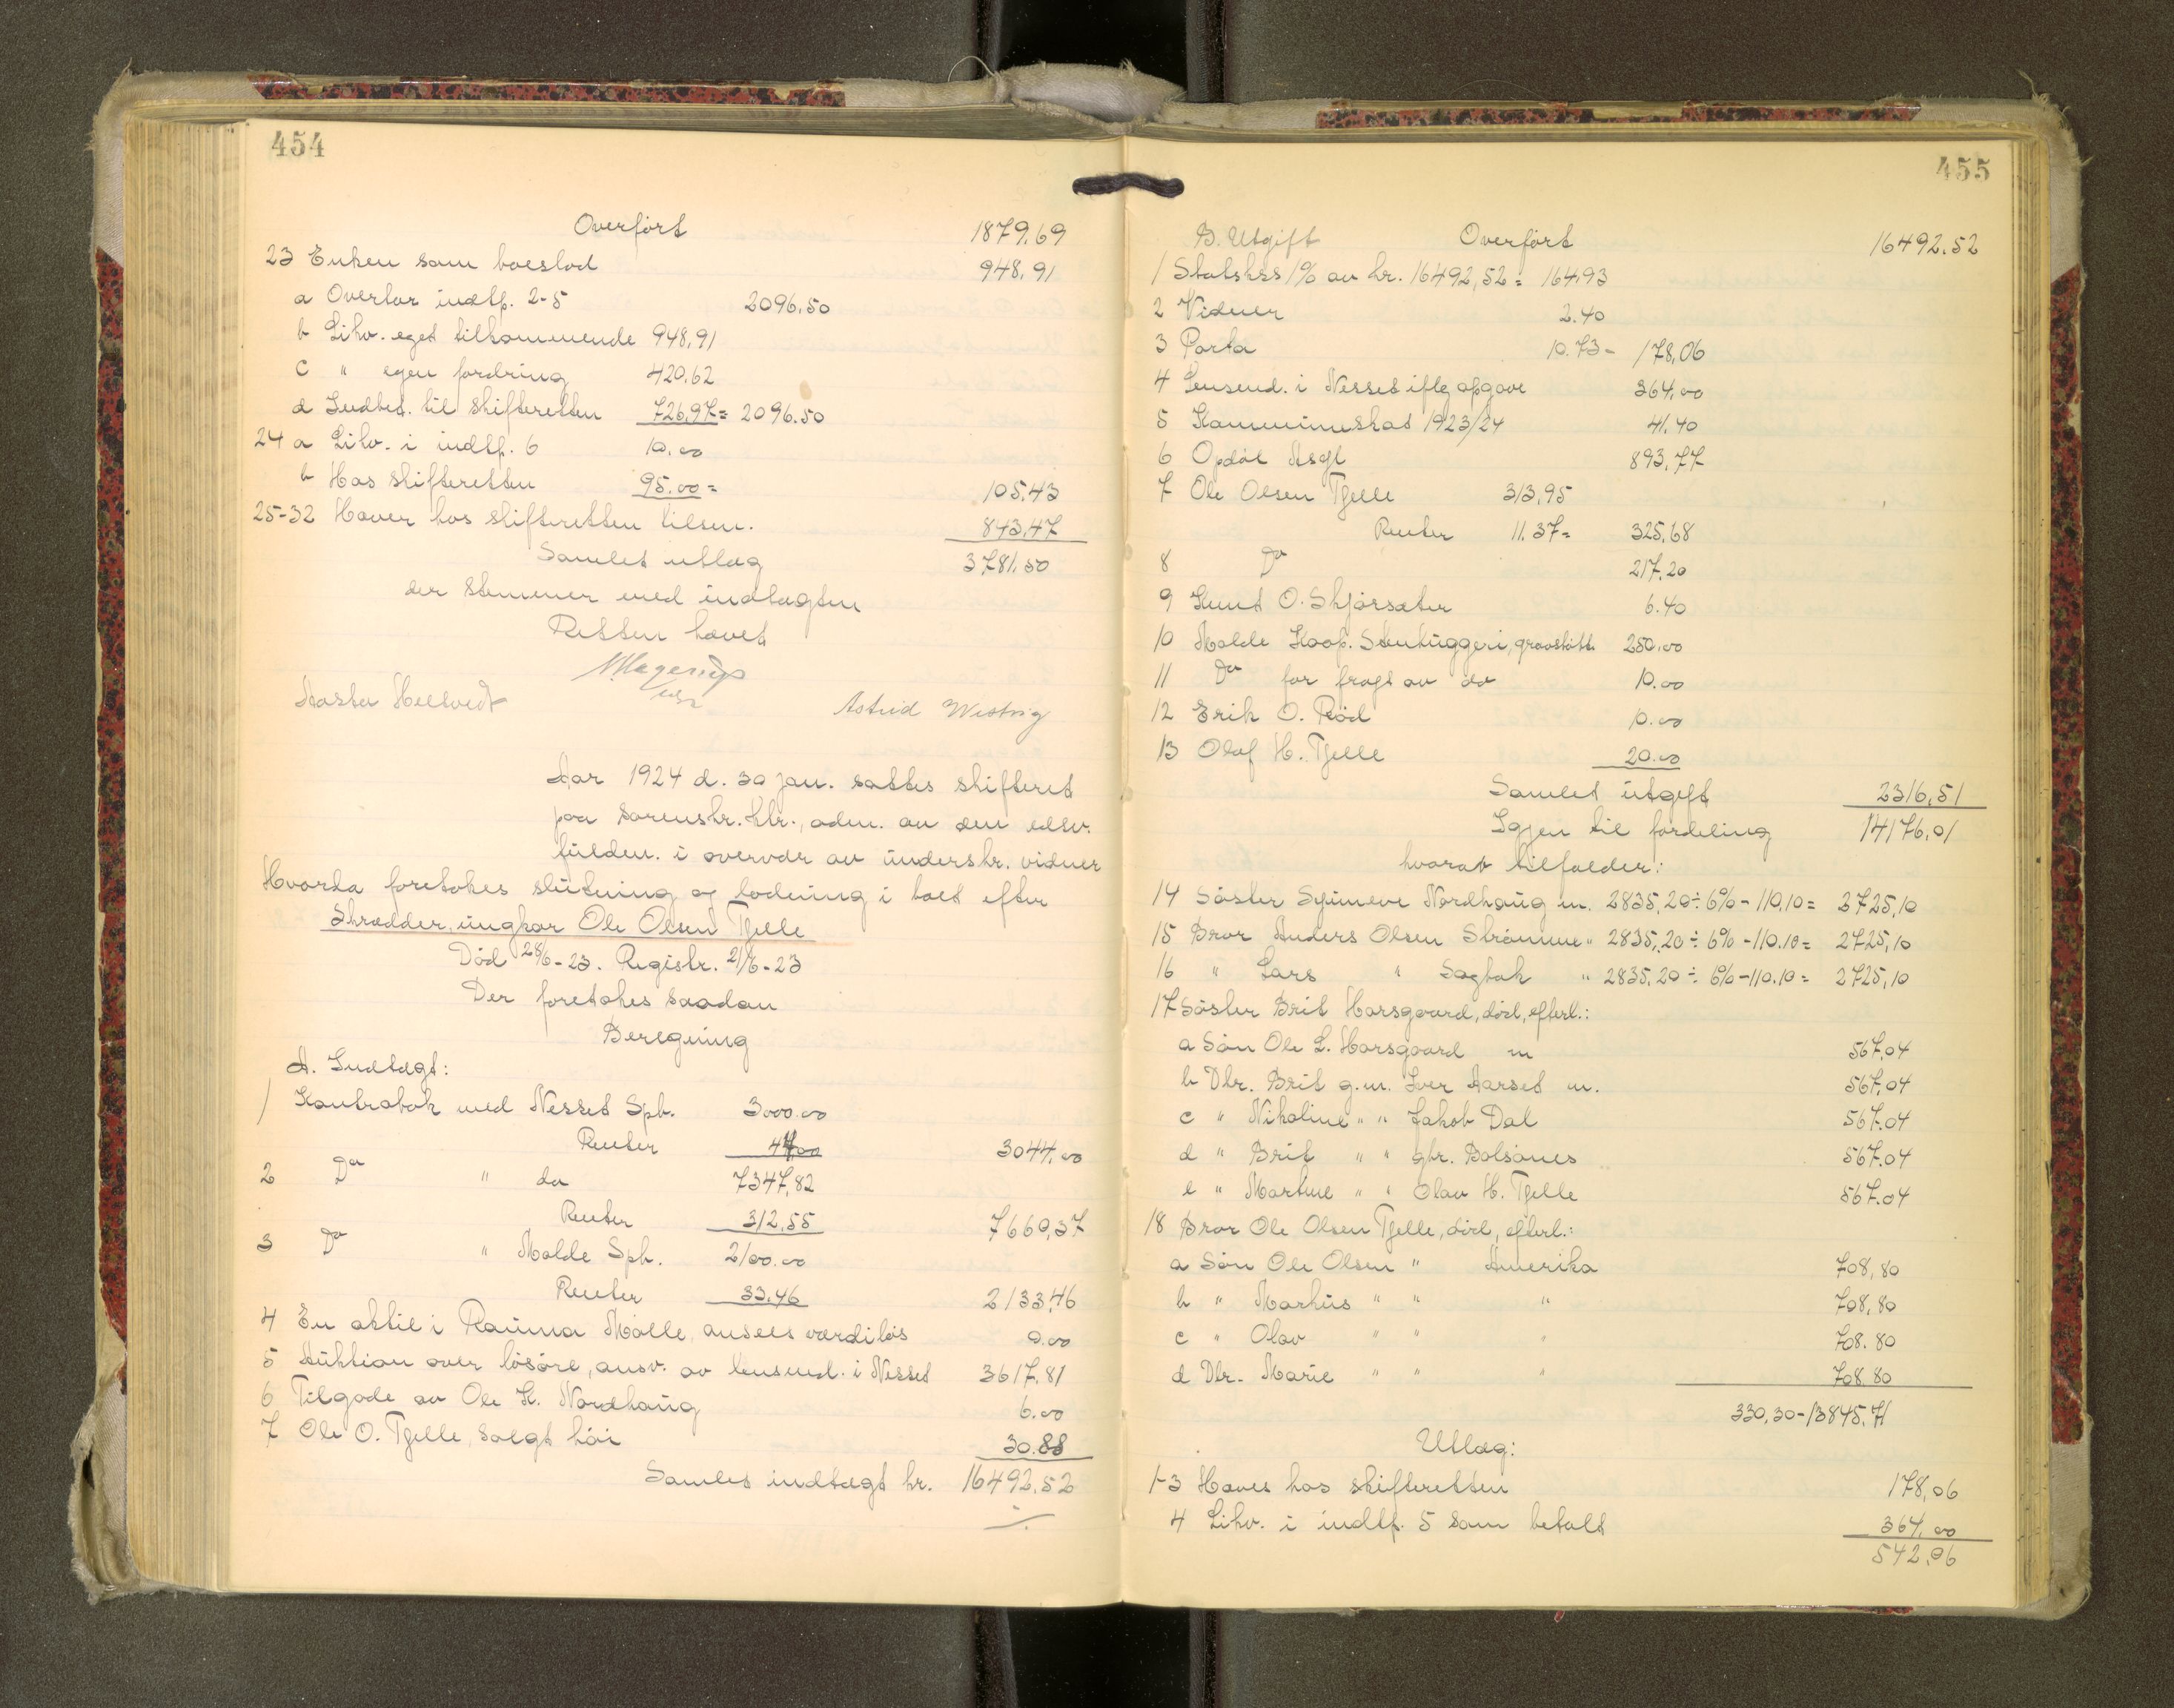 454
Overført 1879.69
23 Enken som boeslod 948,91
a Overtar indtp. 2-5 2096.50
b Likv. eget tilkommende 948,91
c " egen fordring 420.62
d Indbet. til skifteretten 726,97 = 2096.50
24 a Likv. i indtp. 6 10.00
b Hos skifteretten 95.00 = 105.43
25-32 Haver hos skifteretten tilsm. 843,47
Samlet utlæg 3781.50
der stemmer med indtægten
Retten hævet
Aasta Hellvedt Astrid Westvig
Aar 1924 d. 30 jan. sattes skifteret
paa sorenskr.ktr., adm. av den edsv.
fuldm. i overvær av underskr. vidner
Hvorda foretokes slutning og lodning i boet efter
Skrædder, ungkar Ole Olsen Tjelle
Død 28/6-23. Registr. 21/6-23
Der foretokes saadan
Beregning
A. Indtægt:
1 Kontrabok med Nesset Spb. 3000.00
Renter 44.00 3044.00
2 Do " do 7347,82
Renter 312,55 7660,37
3 Do " Molde Spb. 2100.00
Renter 33.46 2133,46
4 En aktie i Rauma Mølle, ansees værdiløs 0.00
5 Auktion over løsøre, ansv. av lensmd. i Nesset 3617,81
6 Tilgode av Ole K. Nordhaug 6.00
7 Ole O. Tjelle, solgt høi 30.88
Samlet indtægt kr. 16492.52
455
B. Utgift Overført 16492.52
1 Statskss 1% av kr. 16492,52 = 164.93
2 Vidner 2.40
3 Porto 10.73 = 178,06
4 Lensmd. i Nesset iflg opgave 364,00
5 Kommuneskat 1923/24 41.40
6 Opdøl Asgl 893,77
7 Ole Olsen Tjelle 313,95
Renter 11.37 = 325,68
8 Do 217,20
9 Knut O. Skjørsæter 6.40
10 Molde Koop. Stenhuggeri, gravstøtte 250.00
11 Do for fragt av do 10.00
12 Erik O. Rød 10.00
13 Olaf H. Tjelle 20.00
Samlet utgift 2316,51
Igjen til fordeling 14176.01
hvorav tilfalder:
14 Søster Synneve Nordhaug m. 2835,20 ÷ 6% - 110.10 = 3725,10
15 Bror Anders Olsen Strømme " 2835,20 ÷ 6% - 110.10 = 2725,10
16 " Lars " Sagbak " 2835,20 ÷ 6% - 110.10 = 2725,10
17 Søster Brit Horsgaard, død, efterl.:
a Søn Ole L. Horsgaard m 567.04
b Dtr. Brit g.m. Iver Aarset m. 567.04
c " Nikoline " " Jakob Dal 567.04
d " Brit " " gbr. Bolsønes 567.04
e " Martine " " Olav H. Tjelle 567.04
18 Bror Ole Olsen Tjelle, død, efterl.:
a Søn Ole Olsen " Amerika 708,80
b " Markus " " " 708,80
c " Olav " " " 708.80
d Dtr. Marie " " " 708.80
330,30 - 13845,71
Utlæg:
1-3 Haves hos skifteretten 178,06
4 Likv. i indtp. 5 som betalt 364.00
542.06